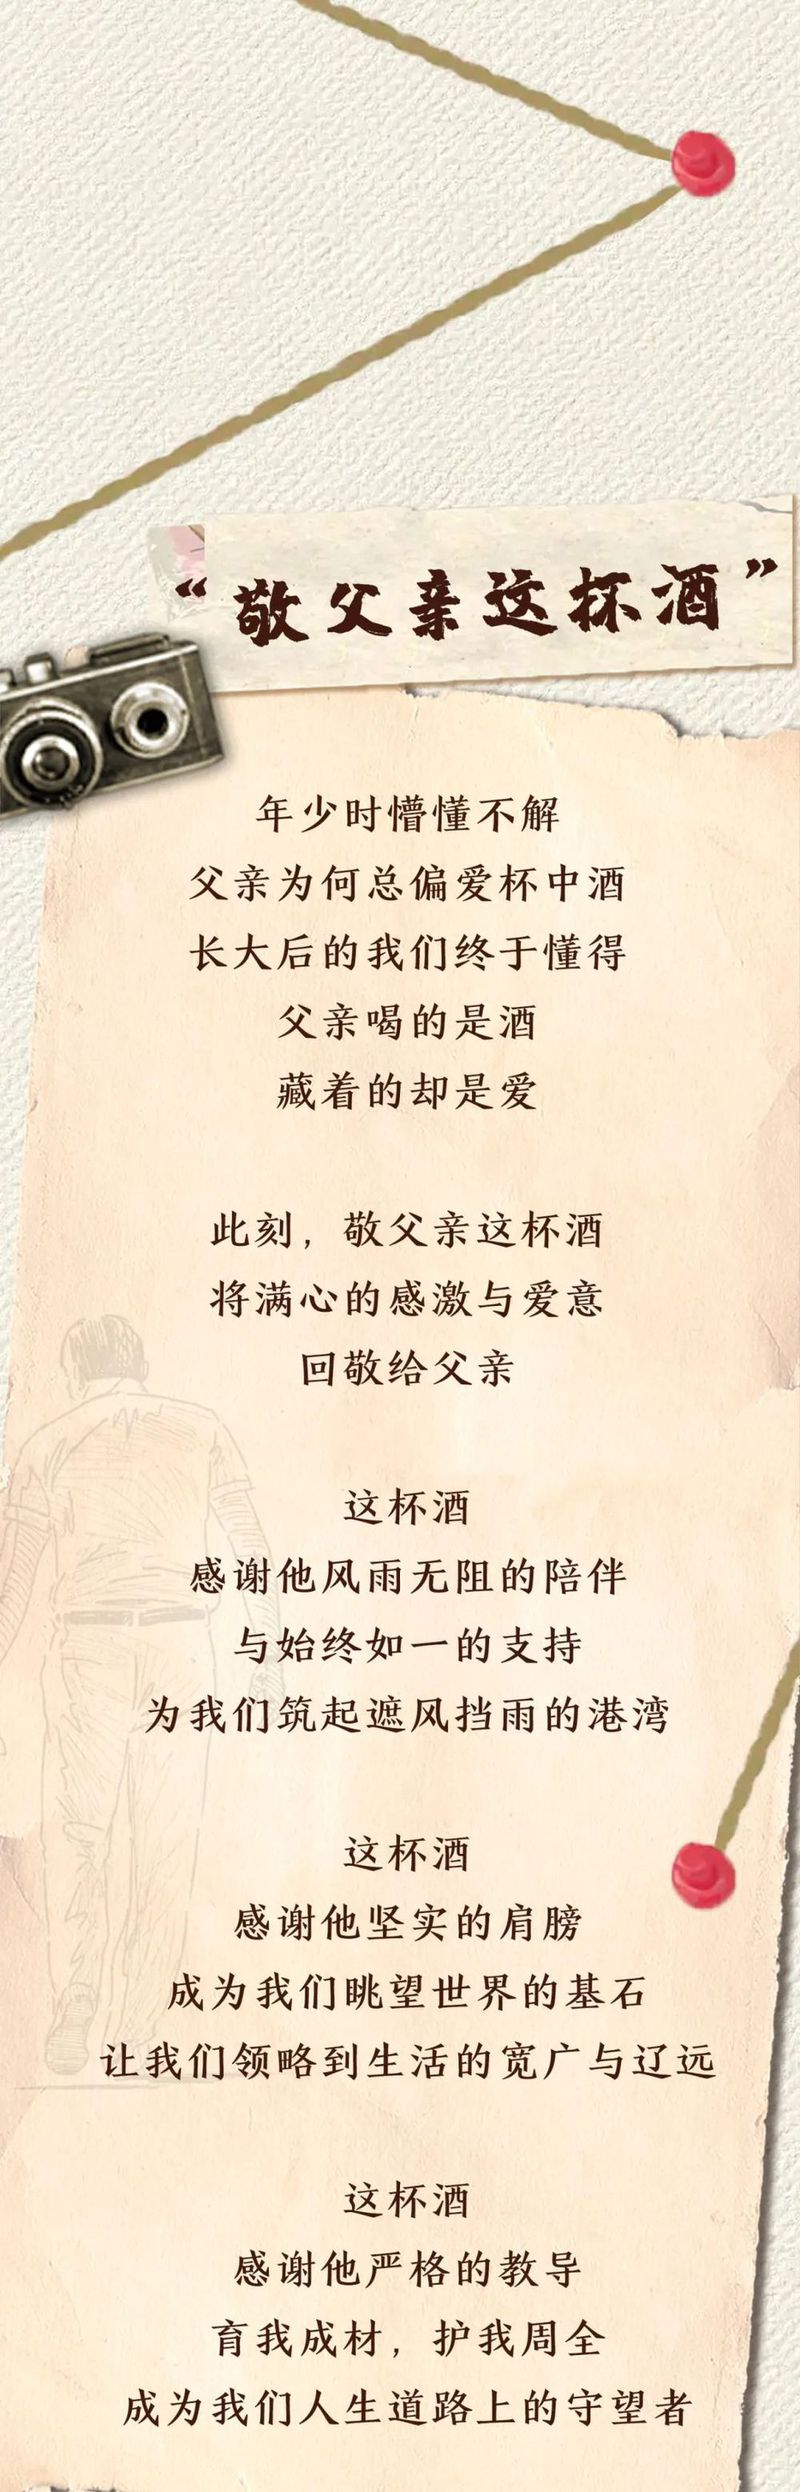 “敬父亲这杯酒”
年少时懵懂不解
父亲为何总偏爱杯中酒
长大后的我们终于懂得
父亲喝的是酒
藏着的却是爱
此刻，敬父亲这杯酒
将满心的感激与爱意
回敬给父亲
这杯酒
感谢他风雨无阻的陪伴
与始终如一的支持
为我们筑起遮风挡雨的港湾
这杯酒
感谢他坚实的肩膀
成为我们眺望世界的基石
让我们领略到生活的宽广与辽远
这杯酒
感谢他严格的教导
育我成材，护我周全
成为我们人生道路上的守望者